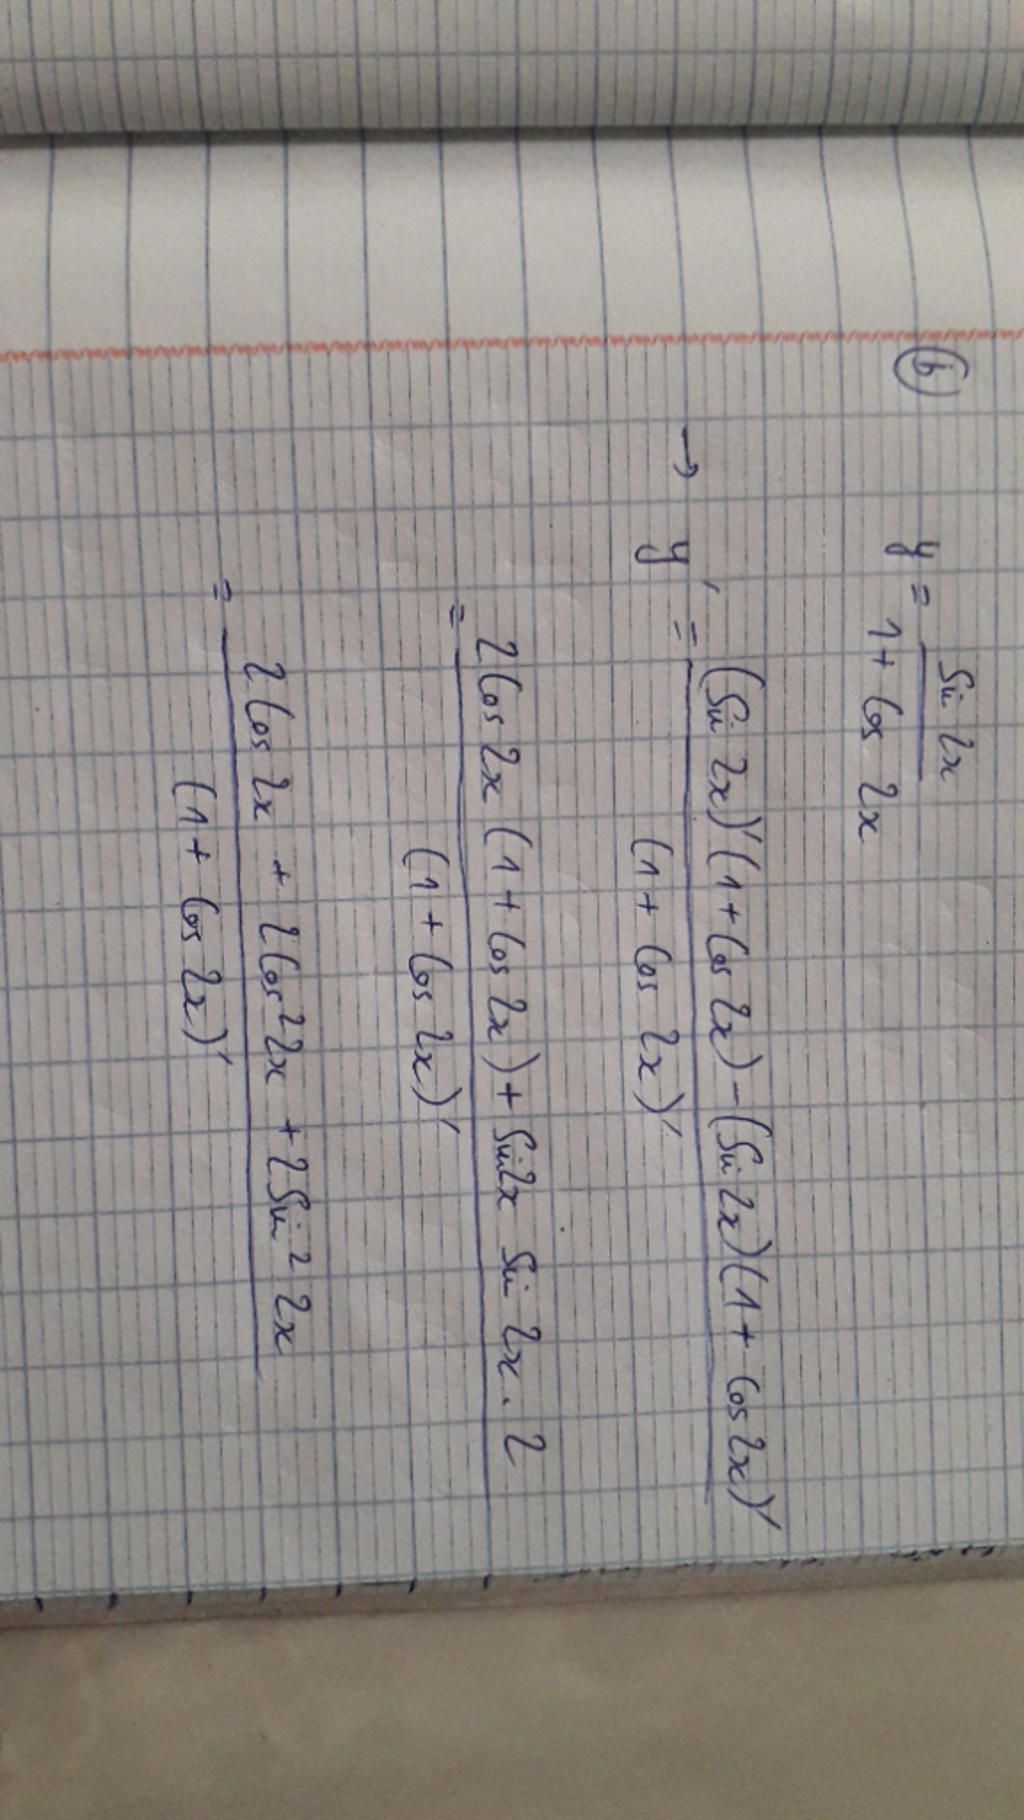 (b) y = sin 2x / 1 + cos 2x
→ y' = (sin 2x)'(1 + cos 2x) - (sin 2x)(1 + cos 2x)' / (1 + cos 2x)'
= 2 cos 2x (1 + cos 2x) + sin2x sin 2x . 2 / (1 + cos 2x)'
= 2 cos 2x + 2 cos² 2x + 2 sin² 2x / (1 + cos 2x)'